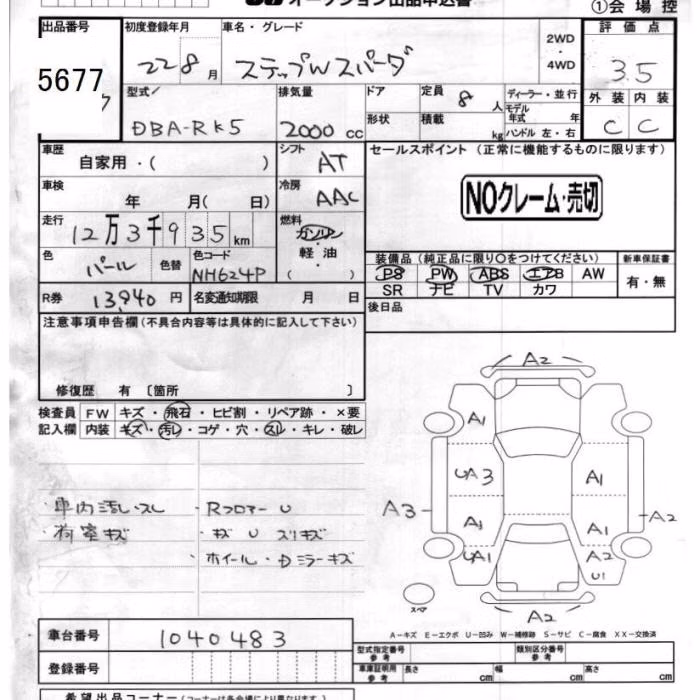 オークション出品申込書
①会場控
出品番号 初度登録年月 車名・グレード 2WD・4WD 評価点
5677 22 8月 ステップWスパーダ 3.5
型式 排気量 ドア 定員 8人 ディーラー・並行 外装 内装
DBA-RK5 2000cc 形状 積載 kg モデル年式 年 ハンドル 左・右 C C
車歴 自家用・( ) シフト AT セールスポイント (正常に機能するものに限ります)
車検 年 月( 日) 冷房 AAC NOクレーム・売切
走行 12万3千935km 燃料 ガソリン・軽油・( )
色 パール 色替 色コード NH624P
装備品(純正品に限り〇をつけてください) 新車保証書
PS PW ABS エアB AW 有・無
SR ナビ TV カワ
R券 13,940円 名変通知期限 月 日 後日品
注意事項申告欄(不具合内容等は具体的に記入して下さい)
修復歴 有 〔箇所 〕
検査員記入欄 FW キズ・飛石・ヒビ割・リペア跡・×要
内装 キズ・汚レ・コゲ・穴・スレ・キレ・破レ
・車内汚レ・スレ
・荷室キズ
・Rフロアー U
・キズ U スリキズ
・ホイール・Dミラーキズ
A2
A1
UA3 A1
A3 A1 A1 A2
UA1 A2
U1
スペア A2
A-キズ E-エクボ U-凹み W-補修跡 S-サビ C-腐食 XX-交換済
車台番号 1040483
型式指定番号 参考 類別区分番号 参考
登録番号 車庫証明用 参考 長さ cm 幅 cm 高さ cm
希望出品コーナー(コーナーは各会場により異なります。)